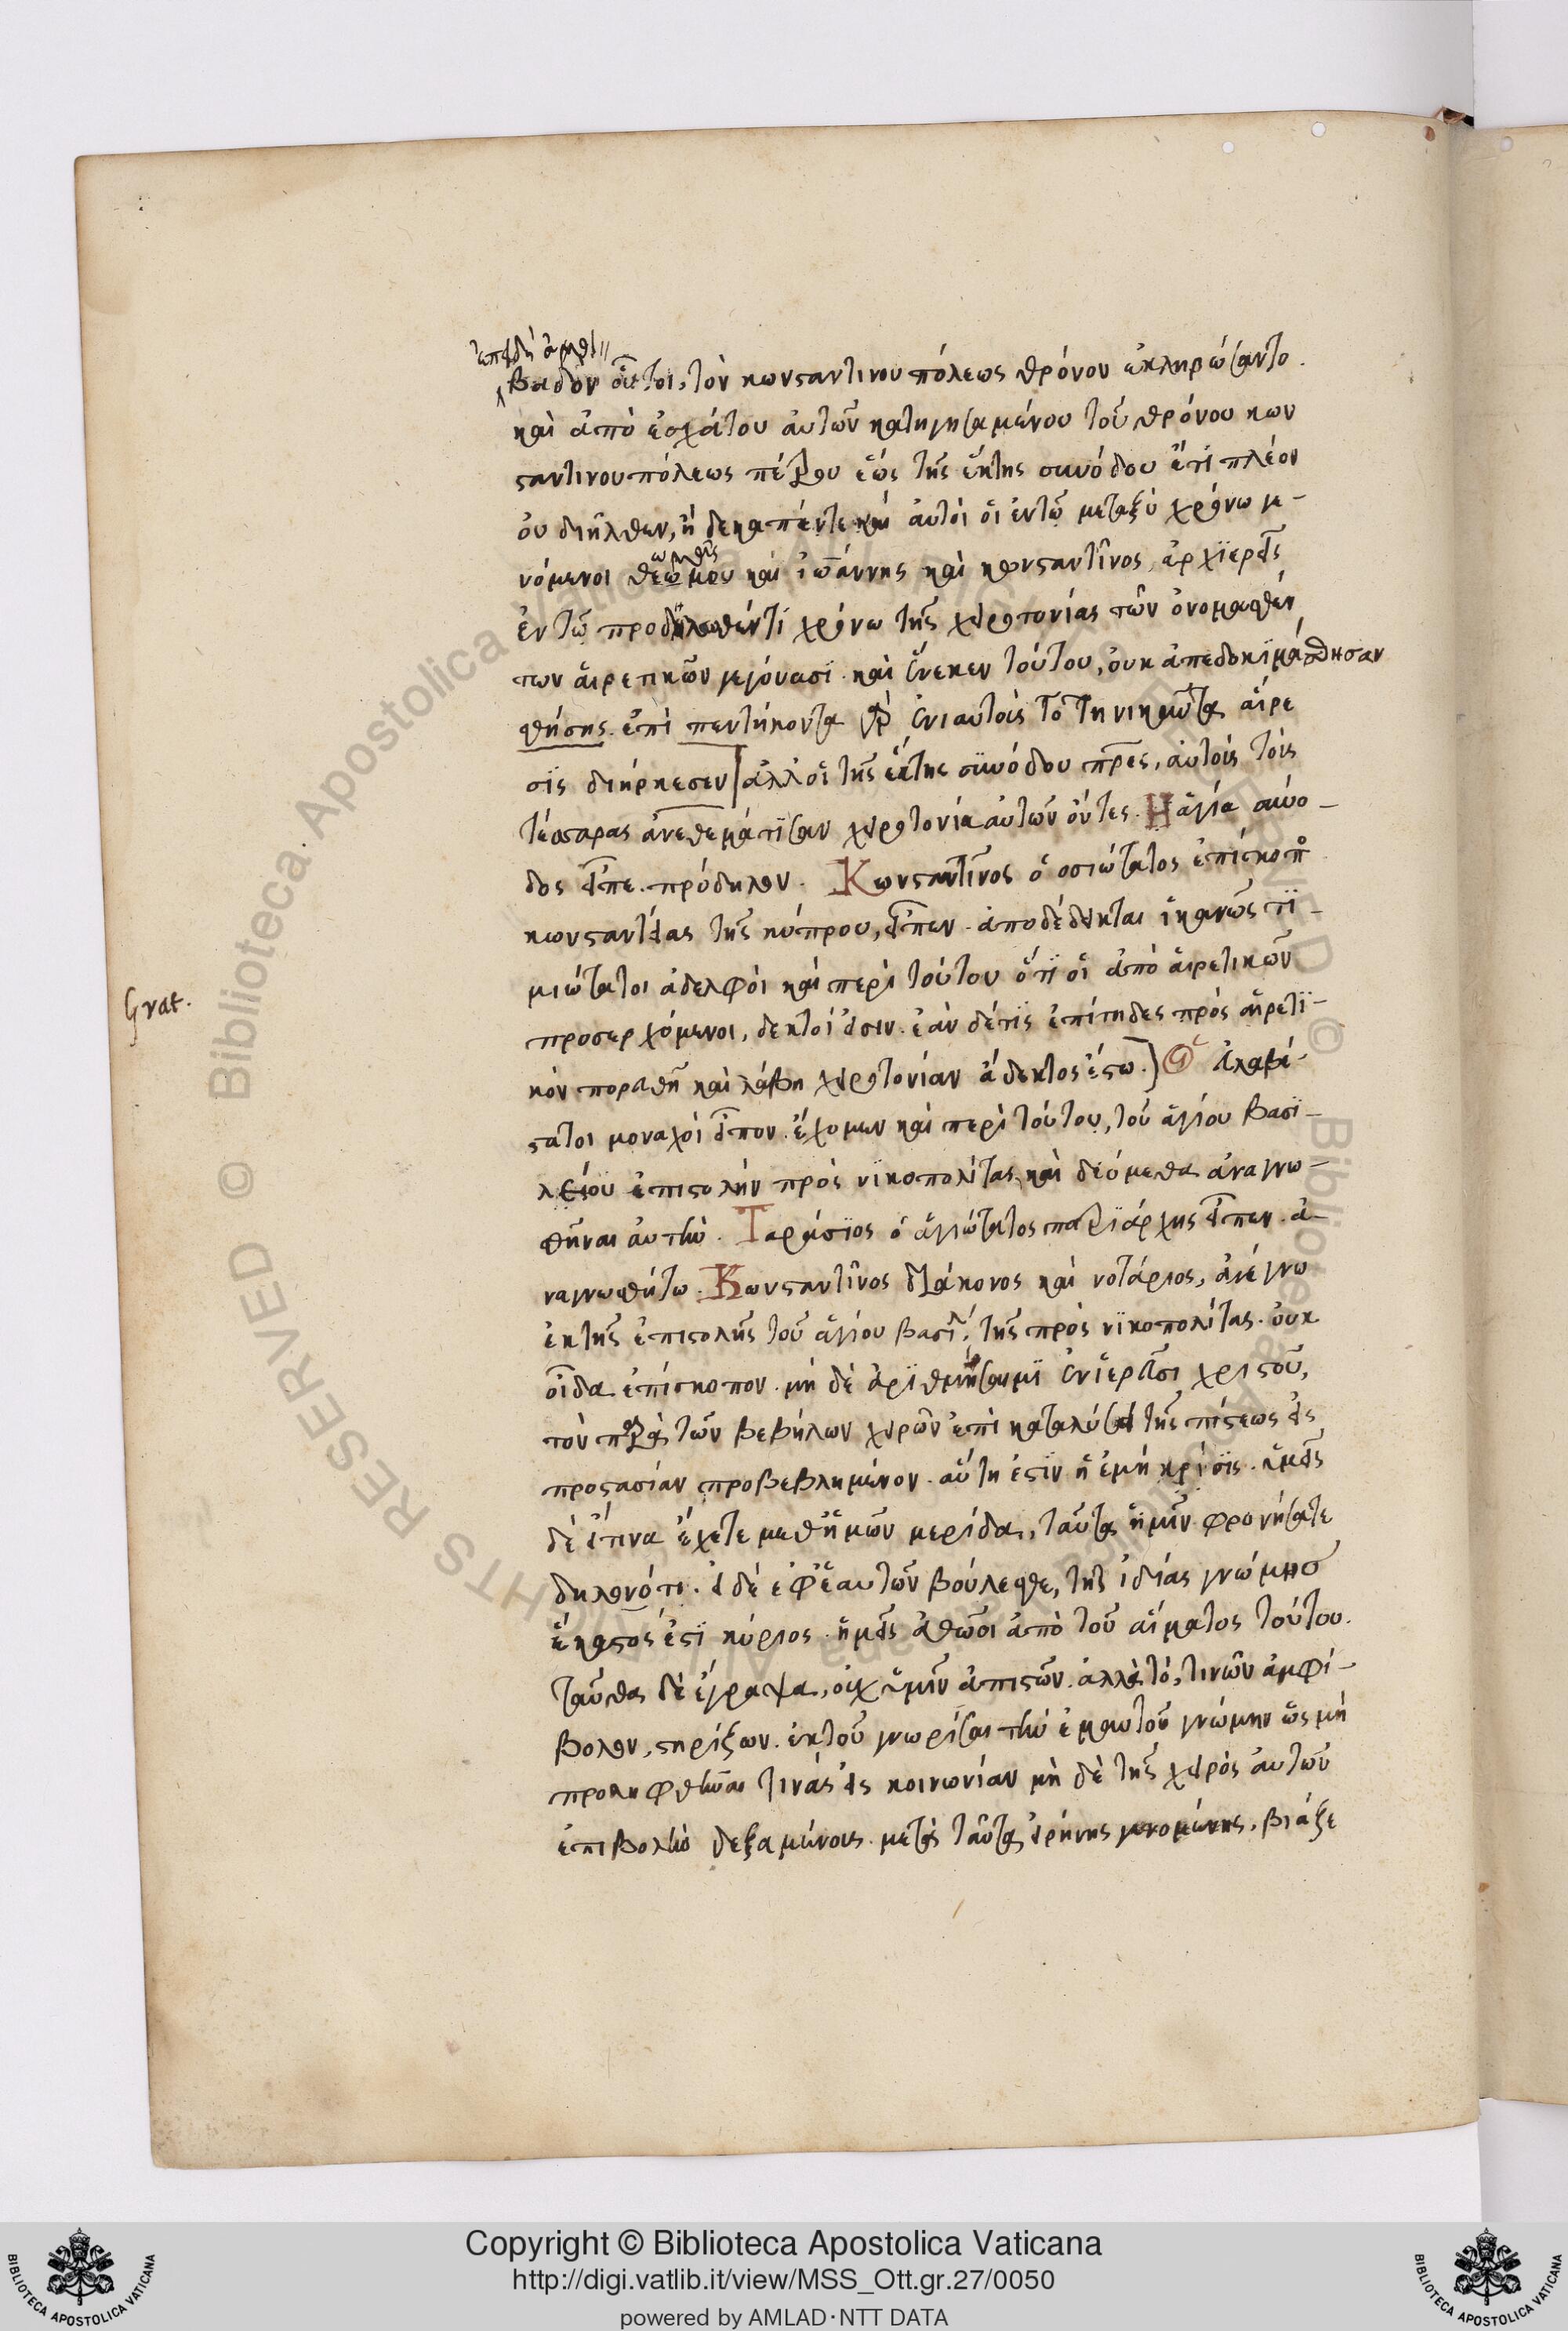 ἐπειδὴ ἀμοι
βαδὸν οὗτοι, τὸν κωνσταντινουπόλεως θρόνον ἐκληρώσαντο.
καὶ ἀπὸ ἐσχάτου αὐτῶν καθηγησαμένου τοῦ θρόνου κων
σταντινουπόλεως πέτρου ἕως τῆς ἕκτης συνόδου ἔτι πλέον
οὐ διῆλθεν, ἢ δεκαπέντε καὶ αὐτοὶ οἱ ἐν τῶ μεταξὺ χρόνω γε-
νόμενοι θεω καὶ ἰωάννης καὶ κωνσταντῖνος ἀρχϊερεῖς
ἐν τῶ προδηλωθέντι χρόνω τῆς χειροτονίας τῶν ὀνομασθέν
των αἱρετικῶν γεγόνασϊ. καὶ ἕνεκεν τούτου, οὐκ ἀπεδοκϊμάσθησαν
θήσης. ἐπὶ πεντήκοντα γὰρ ἐνιαυτοῖς τὸ τηνικαῦτα αἵρε
σϊς διήρκεσεν ἀλλ' οἱ τῆς ἕκτης συνόδου πρες, αὐτοὶς τοὶς
τέσσαρας ἀνεθεμάτϊσαν χειροτονία αὐτῶν ὄντες. Η ἁγία σύνο-
δος εἶπε. πρόδηλον. Κωνσταντῖνος ὁ ὁσιώτατος ἐπίσκοπο
κωνσταντείας τῆς κύπρου, εἶπεν. ἀποδέδεικται ἱκανῶς τϊ-
μιώτατοι ἀδελφοὶ καὶ περὶ τούτου ὅτϊ οἱ ἀπὸ αἱρετικῶν
Grat.
προσερχόμενοι, δεκτοί εἰσιν. ἐὰν δέ τϊς ἐπίτηδες πρὸς αἱρετϊ-
κὸν πορευθῆ καὶ λάβη χειροτονίαν ἄδεκτος ἔστω. εὐλαβέ-
στατοι μοναχοὶ εἶπον. ἔχομεν καὶ περὶ τούτου, τοῦ ἁγίου βασϊ-
λείου ἐπιστολὴν πρὸς νϊκοπολίτας, καὶ δεόμεθα ἀναγνω-
σθῆναι αὐτὴν. Ταράσϊος ὁ ἁγιώτατος πατρϊάρχης εἶπεν. ἀ-
ναγνωσθήτω. Κωνσταντῖνος διάκονος καὶ νοτάριος, ἀνέγνω
ἐκ τῆς ἐπιστολῆς τοῦ ἁγίου βασιλ τῆς πρὸς νϊκοπολίτας. οὐκ
οἶδα ἐπίσκοπον. μὴ δὲ ἀρϊθμήσαιμϊ ἐν ἱερεῦσι χριστοῦ,
τὸν παρὰ τῶν βεβήλων χειρῶν ἐπὶ καταλύσει τῆς πίστεως εἰς
προστασίαν προβεβλημένον. αὕτη ἐστϊν ἡ ἐμὴ κρίσϊς. ὑμεῖς
δὲ εἴ τινα ἔχετε μεθ' ἡμῶν μερίδα, ταῦτα ἡμῖν φρονήσατε
δηλονότι. εἰ δὲ ἐφ' ἑαυτῶν βούλεσθε, τῆς ἰδίας γνώμησ
ἕκαστος ἐστϊ κύριος. ἡμεῖς ἀθῶοι ἀπὸ τοῦ αἵματος τούτου.
ταῦθα δὲ ἔγραψα, οὐχ ὑμῖν ἀπιστῶν. ἀλλὰ τό, τινῶν ἀμφί-
βολον, στηρίξων. ἐκ τοῦ γνωρίσαι τὴν ἐμαυτοῦ γνώμην ὥς μὴ
προληφθῆναι τινάς εἰς κοινωνίαν μὴ δὲ τῆς χειρὸς αὐτῶν
ἐπιβολὴν δεξαμένους. μετὰ ταῦτα εἰρήνης γενομένης, βιάζε